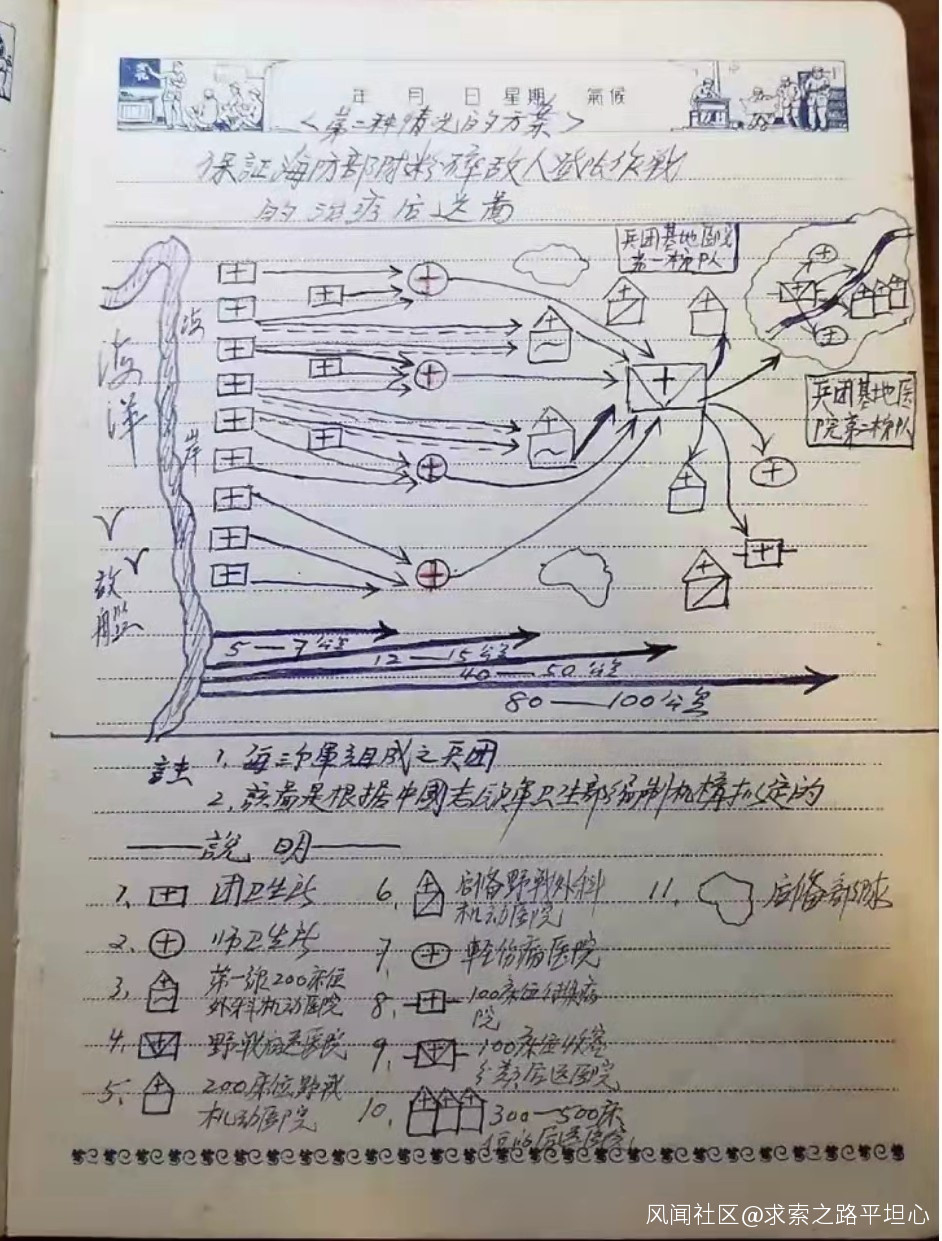 年 月 日 星期 氣候
<第二种情况的方案>
保証海防部队粉碎敌人登陆作战
的治疗后送啚
兵团基地医院
第一梯队
兵团基地医
院第二梯队
海洋
海岸
敌舰
5—7公里
12—15公里
40—50公里
80—100公里
註 1. 每三个軍組成之兵团
2. 該啚是根据中國志愿軍卫生部编制机構拟定的
——說 明——
1. 团卫生所
2. 师卫生所
3. 第一线200床位
外科机动医院
4. 野战后送医院
5. 200床位野战
机动医院
6. 后备野战外科
机动医院
7. 輕伤病医院
8. 100床位传染病
院
9. 100床位收容
分类后送医院
10. 300—500床
位的后送医院
11. 后备部队
风闻社区@求索之路平坦心